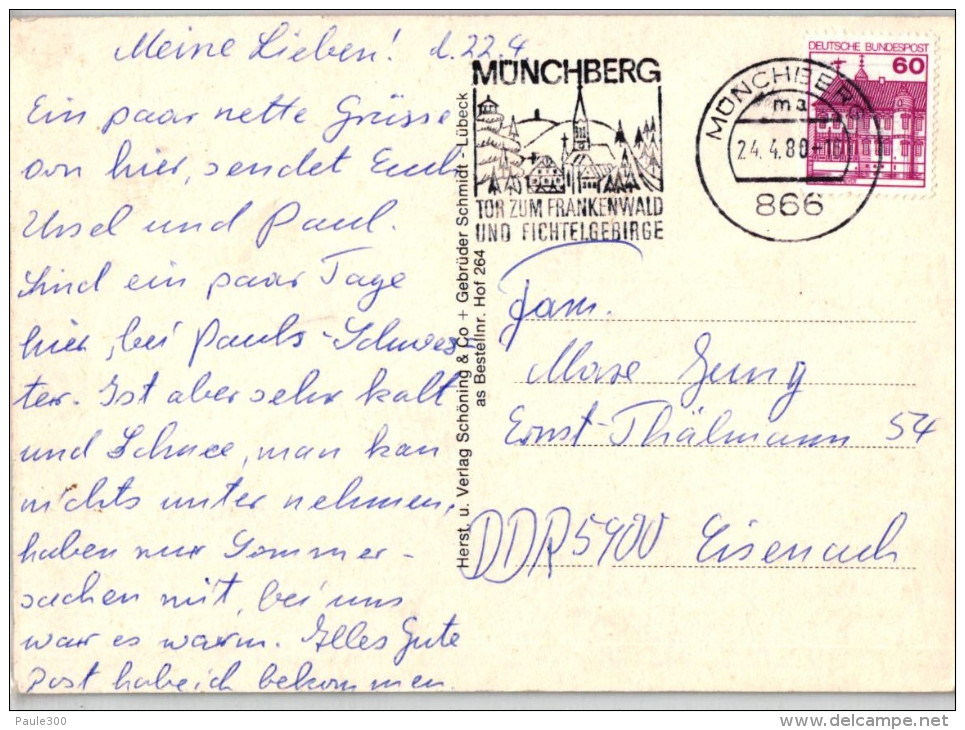 Meine Lieben! d. 22.4
Ein paar nette Grüsse
von hier, sendet Euch
Ursel und Paul.
Sind ein paar Tage
hier, bei Pauls-Schwes
ter. Ist aber sehr kalt
und Schnee, man kan
nichts unter nehmen,
haben nur Sommer-
sachen mit, bei uns
war es warm. Alles Gute
Post habe ich bekommen.
Herst. u. Verlag Schöning & Co + Gebrüder Schmidt - Lübeck
as Bestellnr. Hof 264
MÜNCHBERG
TOR ZUM FRANKENWALD
UND FICHTELGEBIRGE
MÜNCHBERG
ma
24.4.80-10
866
DEUTSCHE BUNDESPOST
60
Fam.
Ernst-Thälmann 54
DDR 5900 Eisenach
Paule300
www.delcampe.net